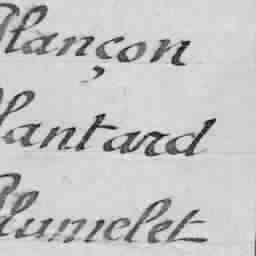 Plançon
Plantard
Plumelet